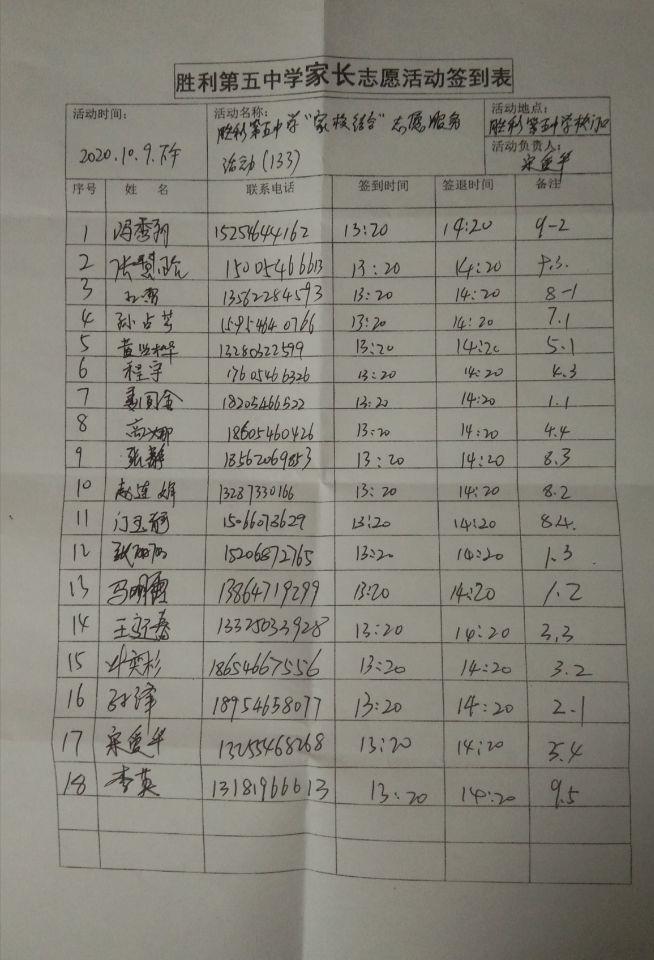 胜利第五中学家长志愿活动签到表
活动时间: 2020.10.9.下午
活动名称: 胜利第五中学"家校结合"志愿服务
活动(133)
活动地点: 胜利第五中学校门口
活动负责人: 宋爱华
序号 姓名 联系电话 签到时间 签退时间 备注
1 冯秀 15254644162 13:20 14:20 9-2
2 张慧 15005466613 13:20 14:20
3 13562284593 13:20 14:20 8-1
4 孙占芳 15954640766 13:20 14:20 7.1
5 黄 13280322599 13:20 14:20 5.1
6 程宇 17605466326 13:20 14:20 4.3
7 18205466522 13:20 14:20 1.1
8 高 18605460426 13:20 14:20 4.4
9 张静 18562069853 13:20 14:20 8.3
10 赵连 13287330166 13:20 14:20 8.2
11 门玉 15066073629 13:20 14:20 8.4.
12 15206872765 13:20 14:20 1.3
13 马明 13864719299 13:20 14:20 1.2
14 王 春 13325033928 13:20 14:20 3.3
15 叶奕杉 18654667556 13:20 14:20 3.2
16 18954658077 13:20 14:20 2.1
17 宋爱华 13255468268 13:20 14:20 5.4
18 李英 13181966613 13:20 14:20 9.5